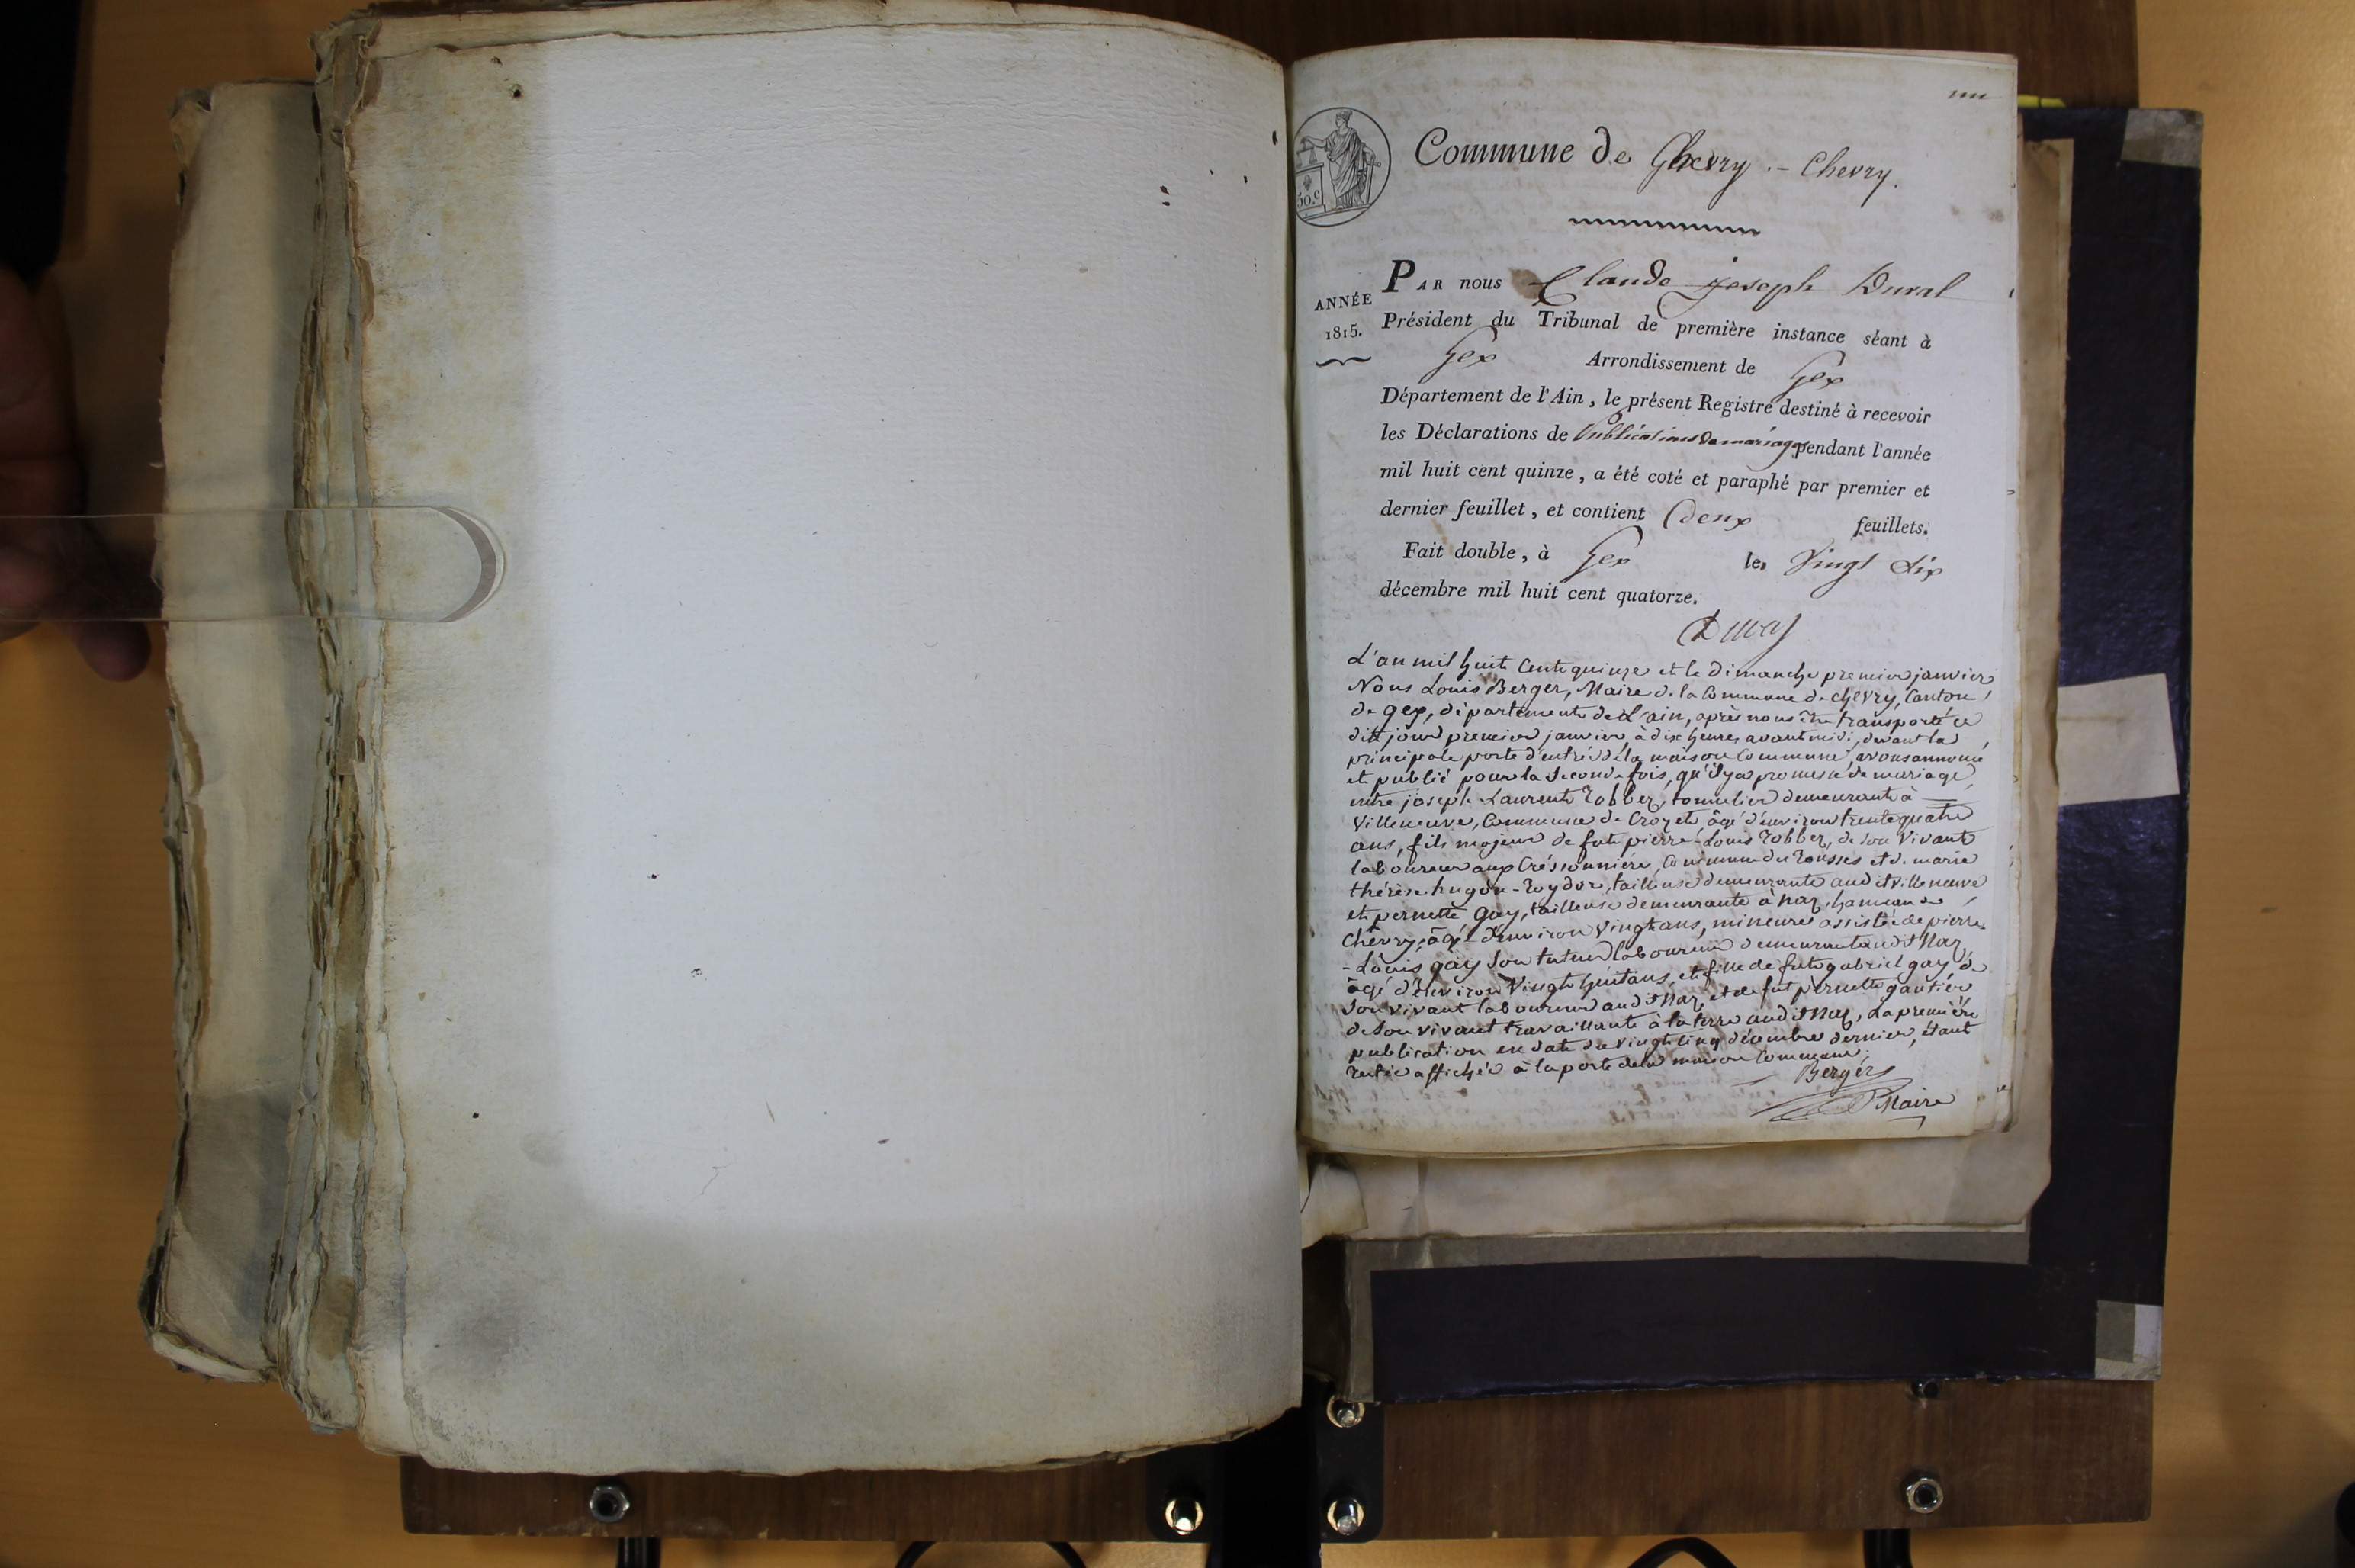 un
Commune de Chevry. - Chevry.
50.C
ANNÉE
1815.
PAR nous Claude joseph Duval
Président du Tribunal de première instance séant à
Gex Arrondissement de Gex
Département de l'Ain, le présent Registre destiné à recevoir
les Déclarations de Publications de mariages pendant l'année
mil huit cent quinze, a été coté et paraphé par premier et
dernier feuillet, et contient deux feuillets.
Fait double, à Gex le Vingt Six
décembre mil huit cent quatorze.
Duval
L'an mil huit Cent quinze et le Dimanche premier janvier
Nous Louis Berger, Maire de la Commune de Chevry, Canton
de gex, département de L'ain, après nous être transporté ce
dit jour premier janvier à dix heures avant midi, devant la
principale porte d'entrée de la maison Commune, avons annoncé
et publié pour la Seconde fois, qu'il y a promesse de mariage
entre joseph Laurent Robbez, tonnelier demeurant à
Villeneuve, Commune de Crozet, âgé d'environ trente quatre
ans, fils majeur de fut pierre-Louis Robbez, de son Vivant
laboureur aux Cressonnière, Commune des Rousses et de marie
thérèse hugon-Roydor, tailleuse demeurante audit Villeneuve
et pernette Gay, tailleuse demeurante à Naz, hameau de
Chevry, âgé d'environ Vingt ans, mineure assistée de pierre
-Louis gay Son tuteur laboureur demeurant audit Naz,
âgé d'environ Vingt huit ans, et fille de fut gabriel gay de
Son vivant laboureur audit Naz, et de fut pernette gautier
de Son vivant travaillante à la terre audit Naz, La première
publication en date du vingt cinq décembre dernier, étant
restée affichée à la porte de la maison Commune.
Berger
Maire